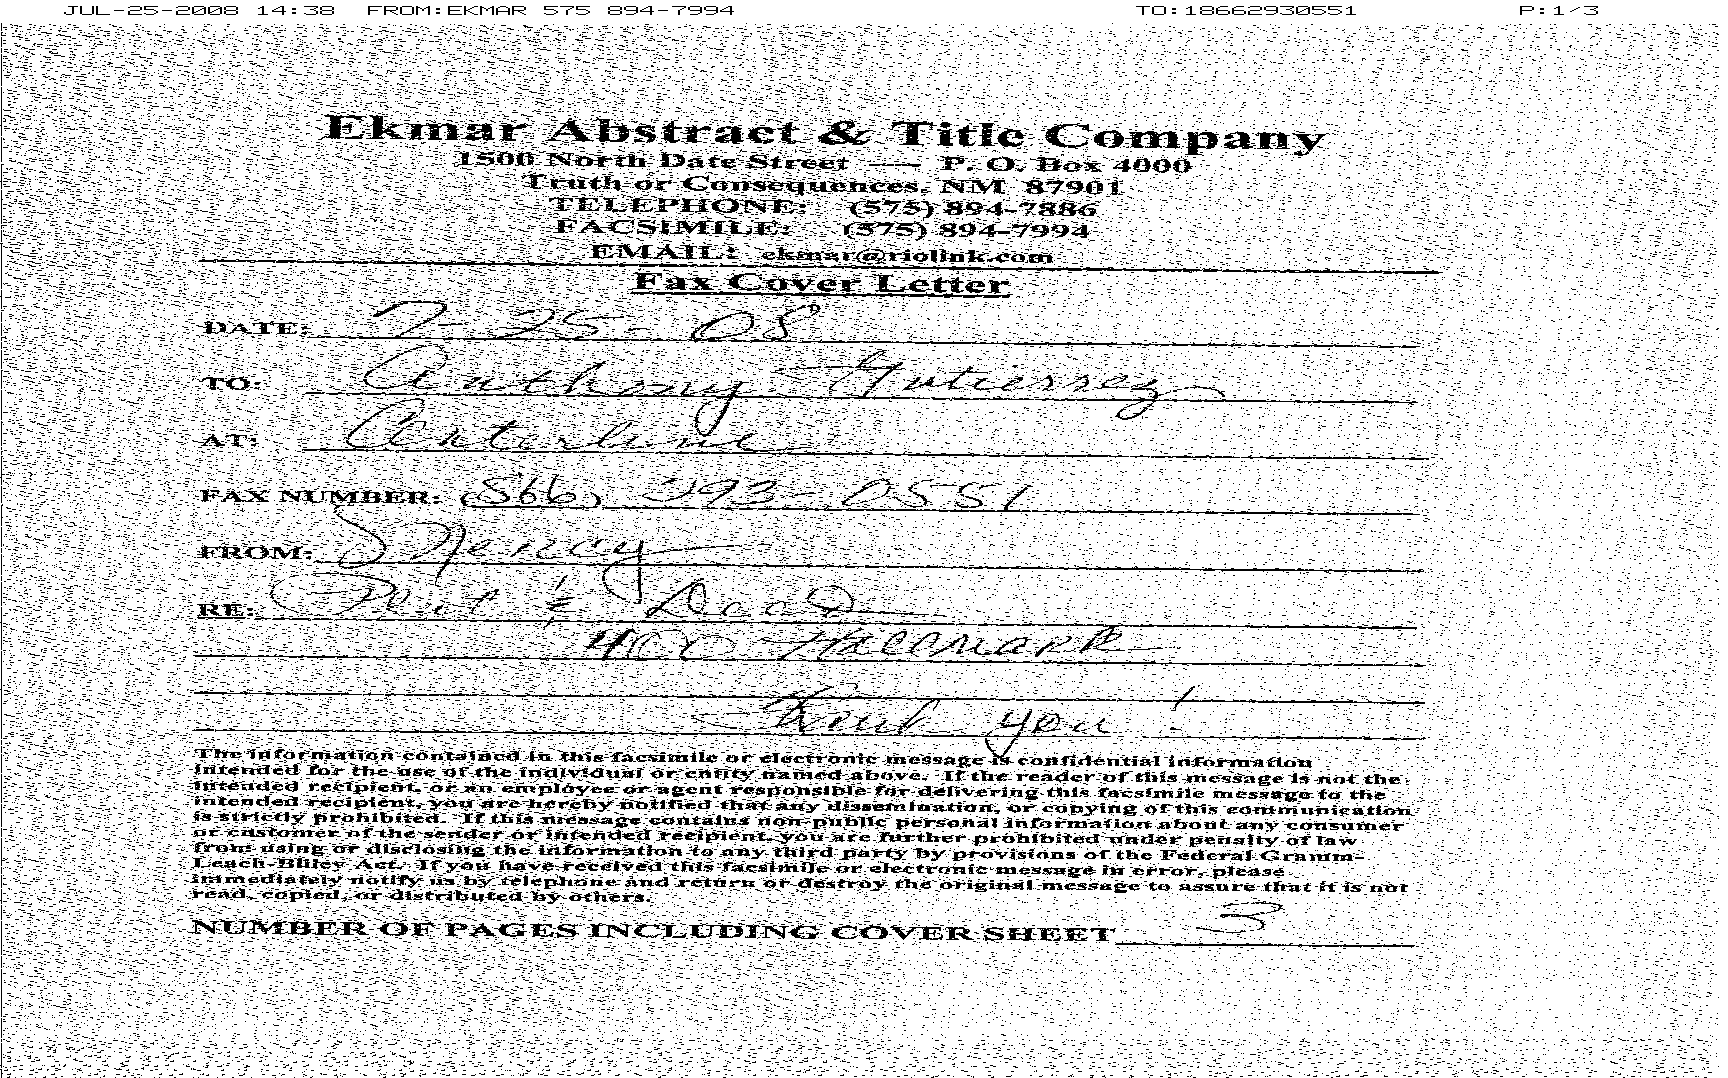 JUL-25-2008 14:38 FROM:EKMAR 575 894-7994 TO:18662930551 P:1/3
Ekmar Abstract & Title Company
1500 North Date Street — P. O. Box 4000
Truth or Consequences, NM 87901
TELEPHONE: (575) 894-7886
FACSIMILE: (575) 894-7994
EMAIL: ekmar@riolink.com
Fax Cover Letter
DATE: 7-25-08
TO: Anthony Gutierrez
AT:
FAX NUMBER: (866) 293-0551
FROM:
RE: & Deed
400
Thank you!
The information contained in this facsimile or electronic message is confidential information
intended for the use of the individual or entity named above. If the reader of this message is not the
intended recipient, or an employee or agent responsible for delivering this facsimile message to the
intended recipient, you are hereby notified that any dissemination, or copying of this communication
is strictly prohibited. If this message contains non-public personal information about any consumer
or customer of the sender or intended recipient, you are further prohibited under penalty of law
from using or disclosing the information to any third party by provisions of the Federal Gramm-
Leach-Bliley Act. If you have received this facsimile or electronic message in error, please
immediately notify us by telephone and return or destroy the original message to assure that it is not
read, copied, or distributed by others.
NUMBER OF PAGES INCLUDING COVER SHEET 3